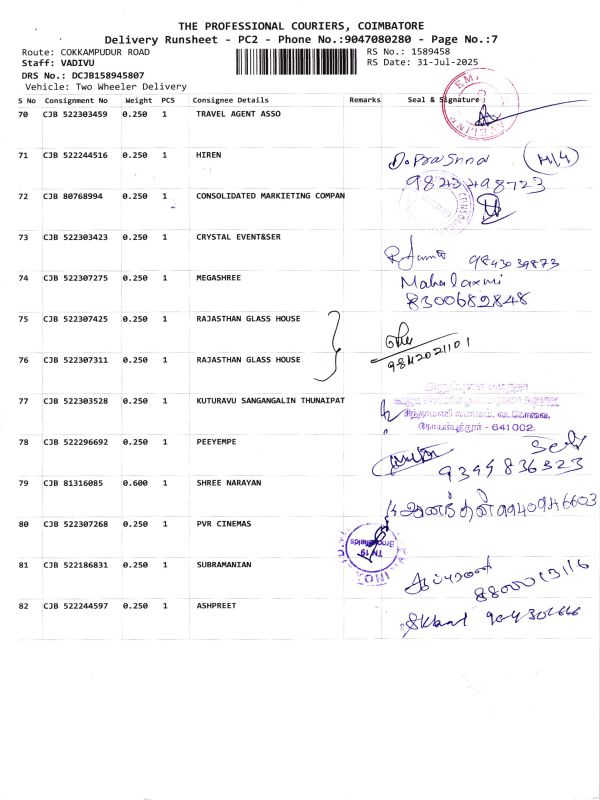 THE PROFESSIONAL COURIERS, COIMBATORE
Delivery Runsheet - PC2 - Phone No.:9047080280 - Page No.:7
Route: COKKAMPUDUR ROAD RS No.: 1589458
Staff: VADIVU RS Date: 31-Jul-2025
DRS No.: DCJB158945807
Vehicle: Two Wheeler Delivery
S No Consignment No Weight PCS Consignee Details Remarks Seal & Signature
70 CJB 522303459 0.250 1 TRAVEL AGENT ASSO
71 CJB 522244516 0.250 1 HIREN
72 CJB 80768994 0.250 1 CONSOLIDATED MARKIETING COMPAN
73 CJB 522303423 0.250 1 CRYSTAL EVENT&SER
9843039873
74 CJB 522307275 0.250 1 MEGASHREE Mahalaxmi
8300689848
75 CJB 522307425 0.250 1 RAJASTHAN GLASS HOUSE
9842021101
76 CJB 522307311 0.250 1 RAJASTHAN GLASS HOUSE
77 CJB 522303528 0.250 1 KUTURAVU SANGANGALIN THUNAIPAT
சிந்தாமணி வளாகம், வடகோவை,
கோயம்புத்தூர் - 641 002.
78 CJB 522296692 0.250 1 PEEYEMPE
9344836323
79 CJB 81316085 0.600 1 SHREE NARAYAN
ஆனந்தன் 9940946603
80 CJB 522307268 0.250 1 PVR CINEMAS
TN 19
Brookfields
81 CJB 522186831 0.250 1 SUBRAMANIAN
82 CJB 522244597 0.250 1 ASHPREET